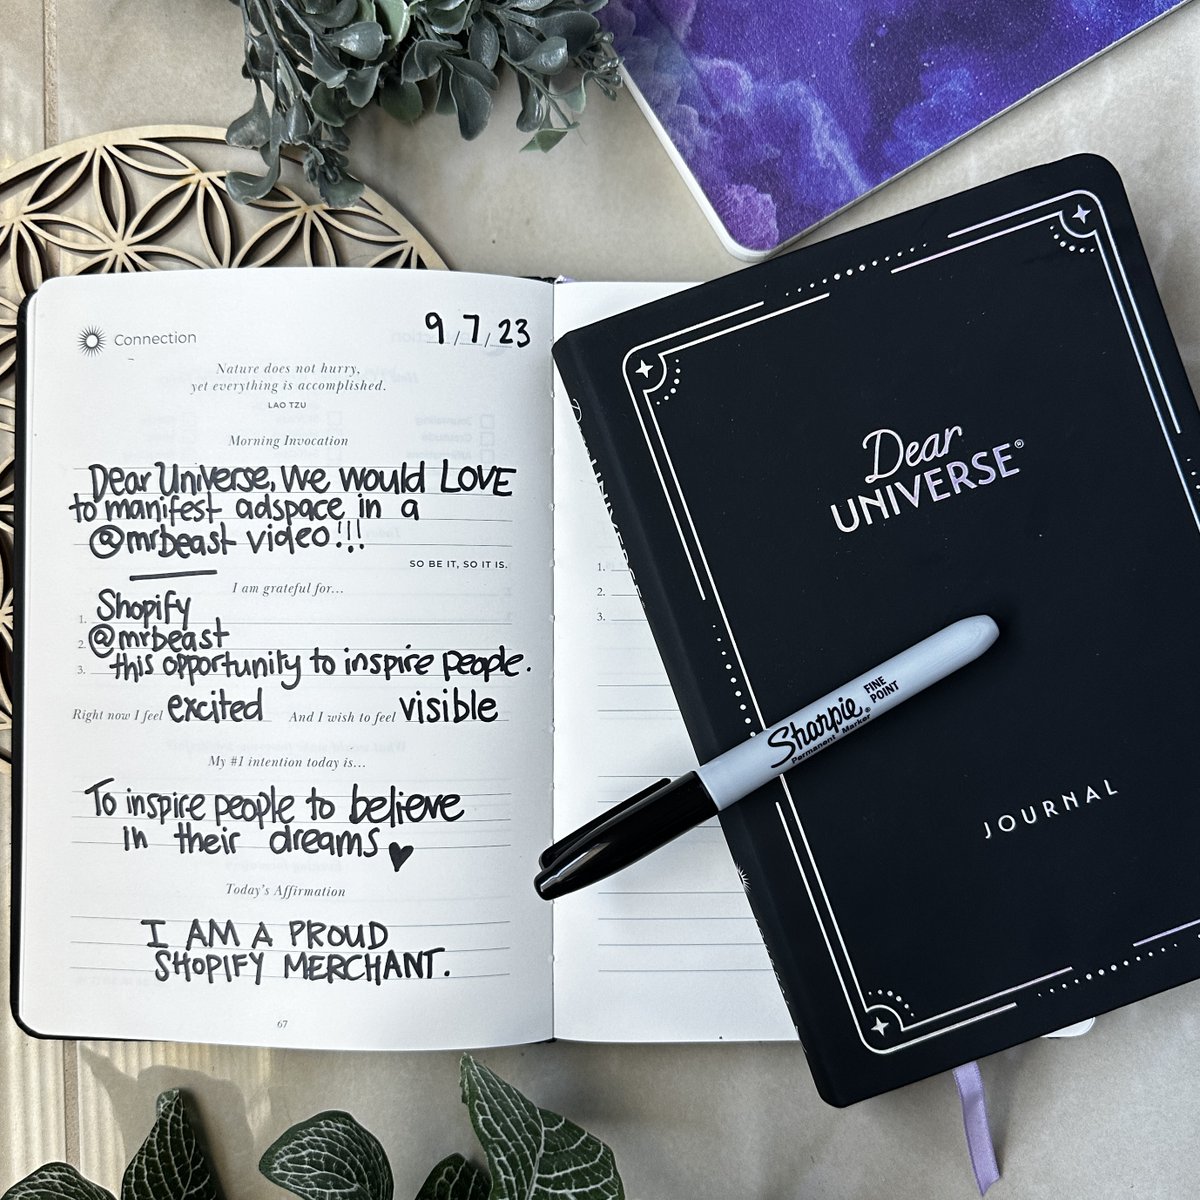 Connection
9/7/23
Nature does not hurry,
yet everything is accomplished.
LAO TZU
Morning Invocation
Dear Universe, We would LOVE
to manifest adspace in a
@mrbeast video!!!
SO BE IT, SO IT IS.
I am grateful for...
1. Shopify
2. @mrbeast
3. this opportunity to inspire people.
Right now I feel excited And I wish to feel visible
My #1 intention today is...
To inspire people to believe
in their dreams
Today's Affirmation
I AM A PROUD
SHOPIFY MERCHANT.
67
1.
2.
3.
Dear
UNIVERSE®
JOURNAL
Sharpie®
FINE
POINT
Permanent Marker